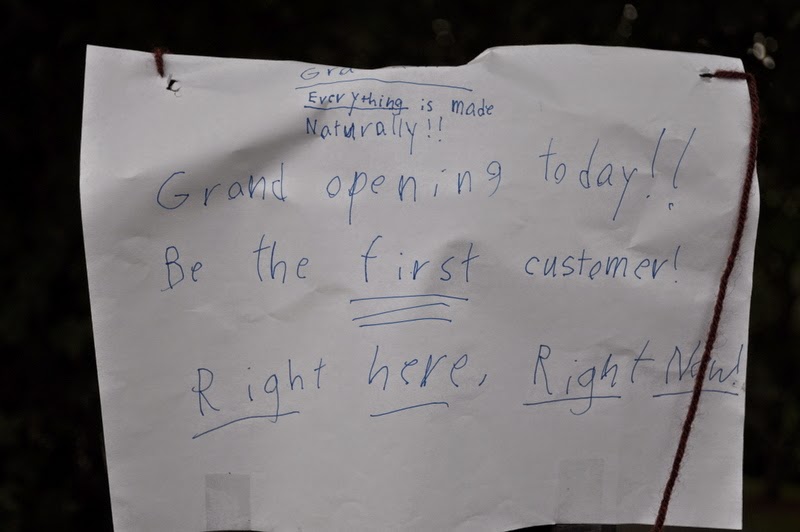 Gra
Everything is made
Naturally!!
Grand opening today!!
Be the first customer!
Right here, Right Now!